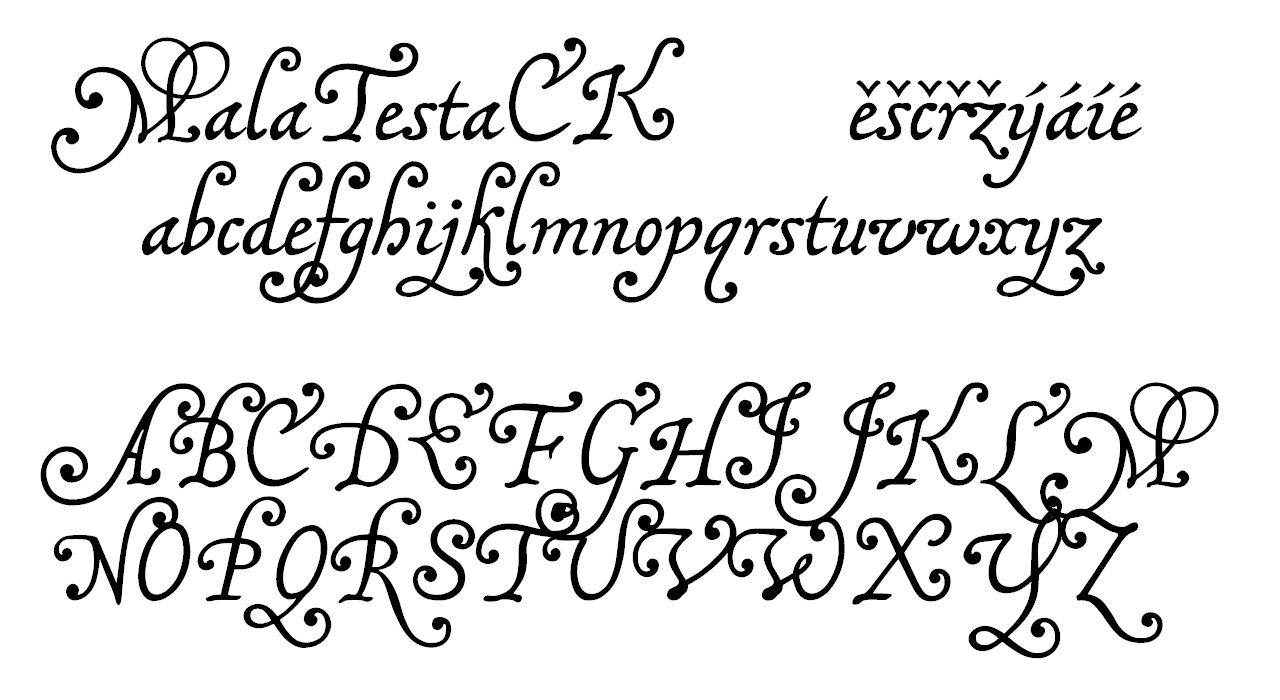 MalaTestaCK ěščřžýáíé
abcdefghijklmnopqrstuvwxyz
ABCDEFGHIJKLM
NOPQRSTUVWXYZ